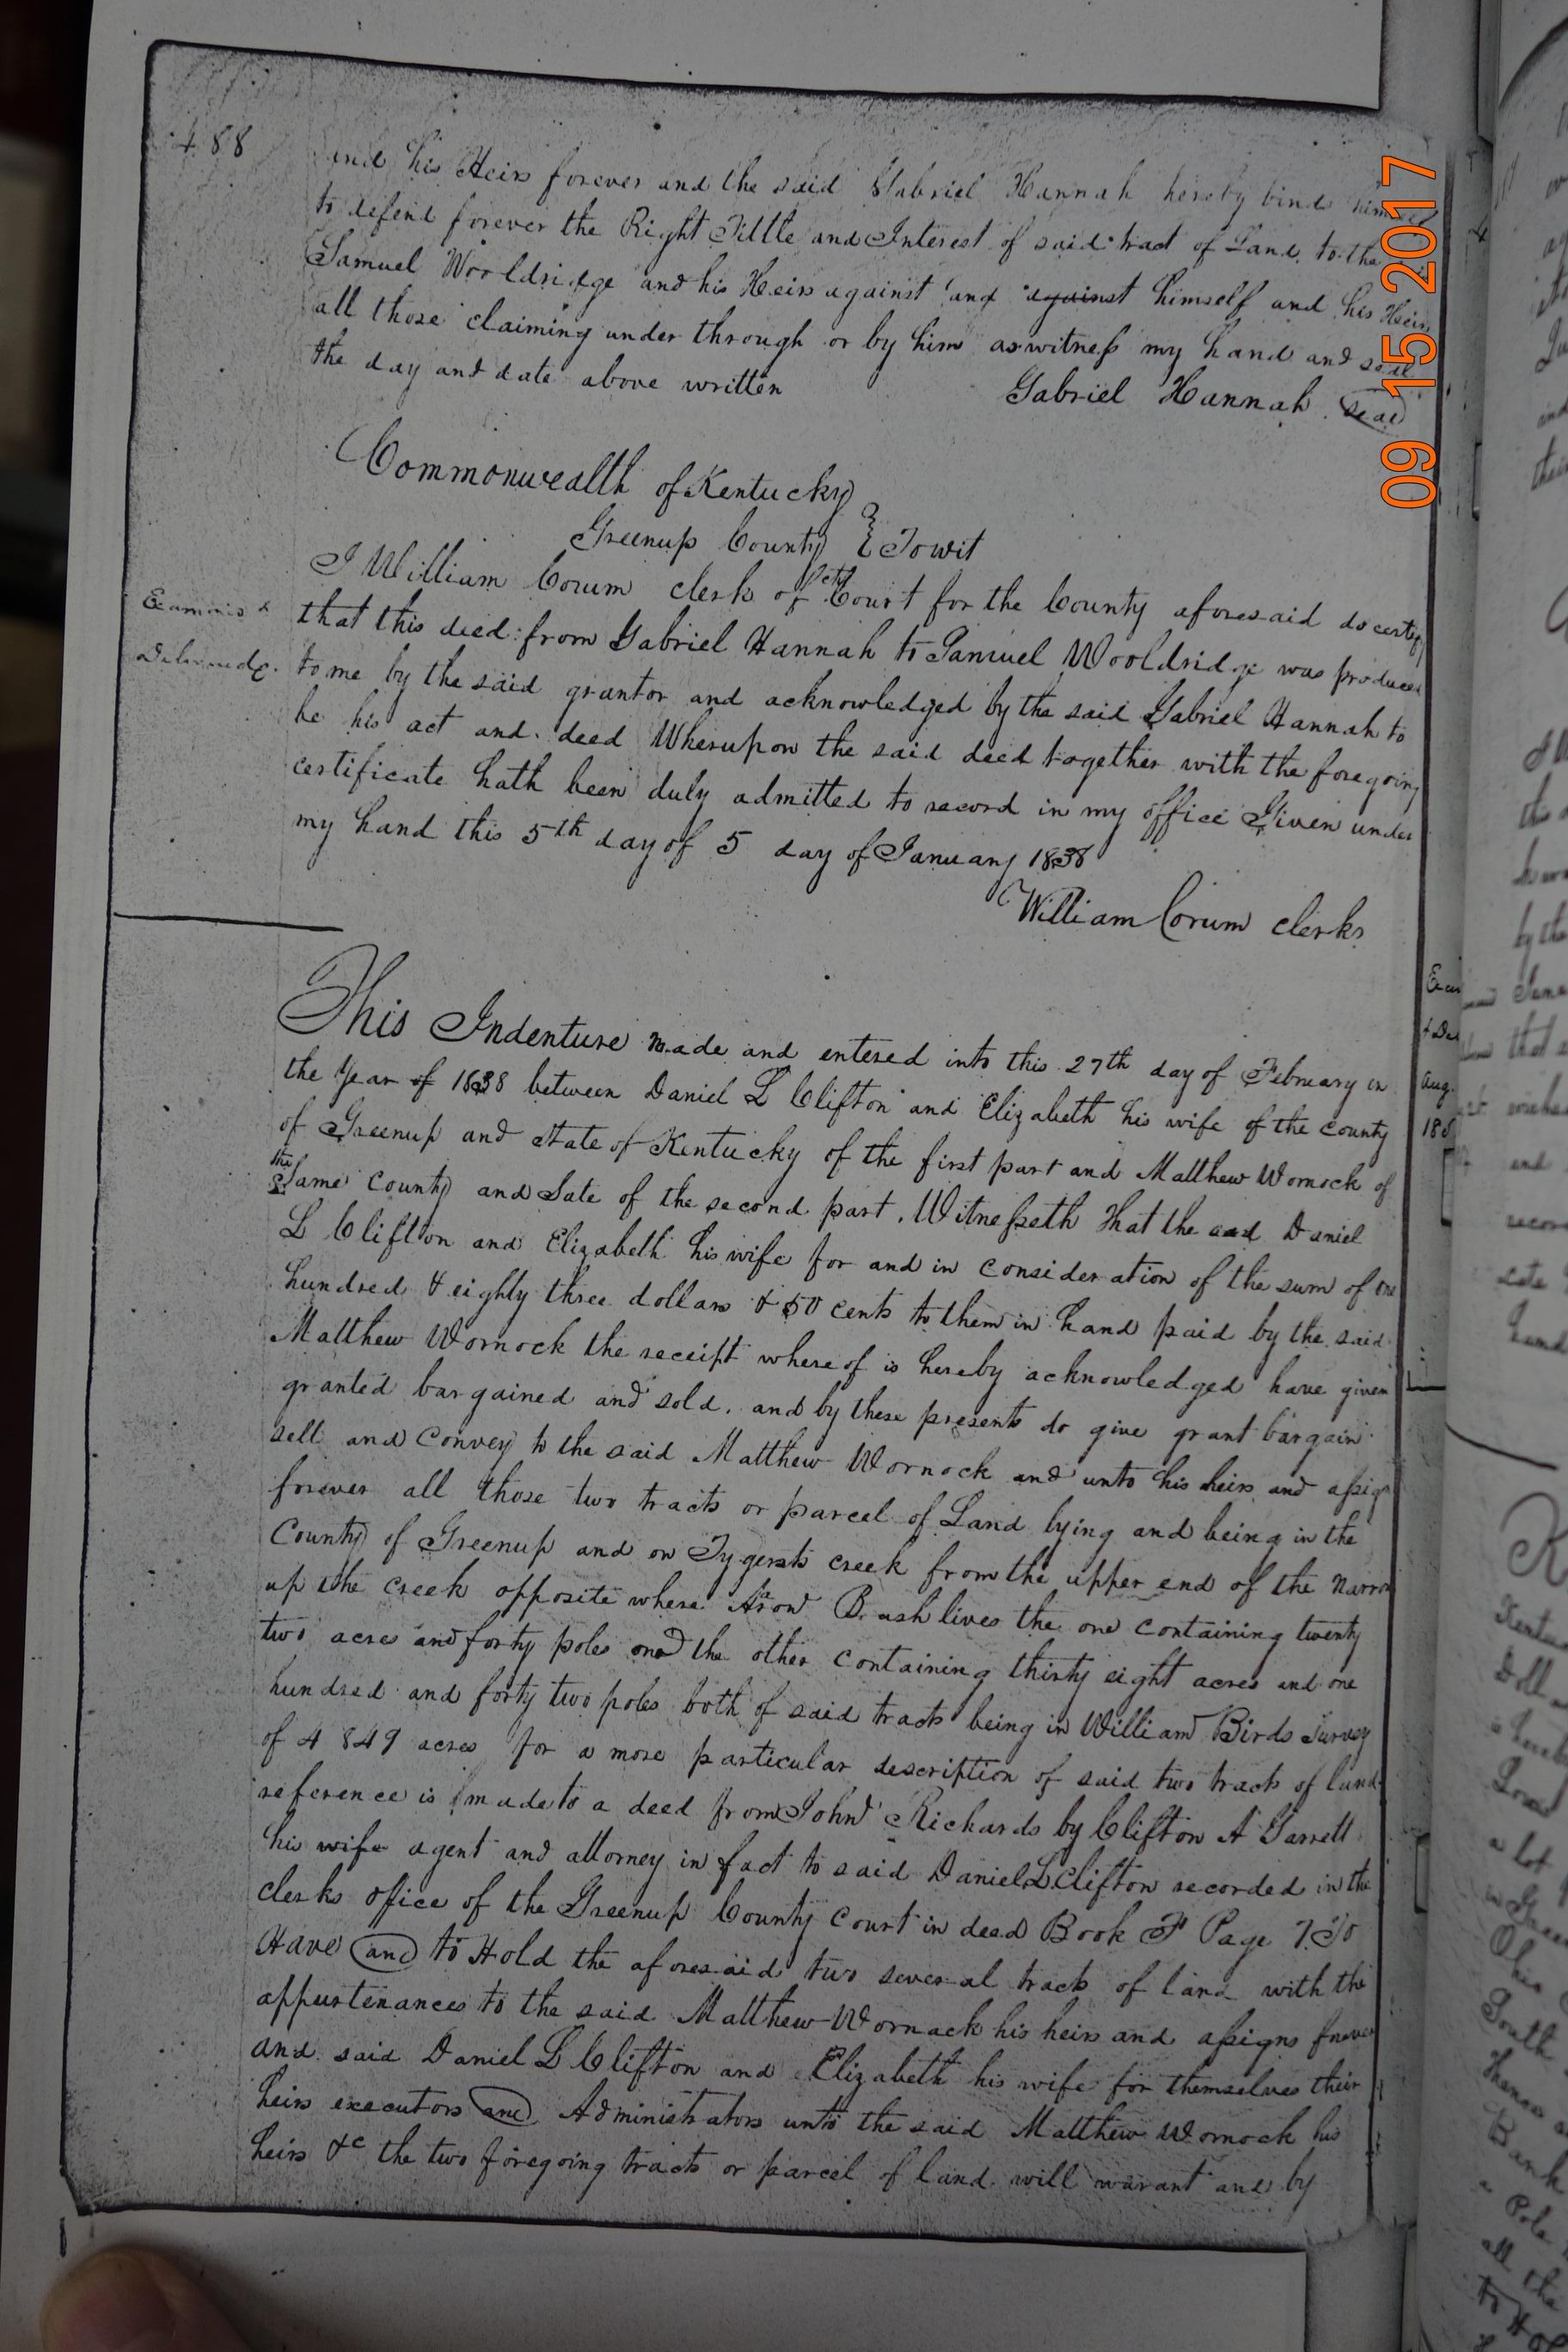 488
and his Heirs forever and the said Gabriel Hannah hereby binds himself
to defend forever the Right Tittle and Interest of said tract of Land to the
Samuel Wooldridge and his Heirs against and against himself and his Heirs
all those claiming under through or by him as witness my hand and seal
the day and date above written
Gabriel Hannah Seal
Commonwealth of Kentucky
Greenup County } Towit
I William Corum clerk of the Court for the County aforesaid do certify
that this deed from Gabriel Hannah to Samuel Wooldridge was produced
to me by the said grantor and acknowledged by the said Gabriel Hannah to
be his act and deed Wherupon the said deed together with the foregoing
certificate hath been duly admitted to record in my office Given under
my hand this 5th day of 5 day of January 1838
William Corum clerk
Examined &
Delivered
This Indenture made and entered into this 27th day of February in
the Year of 1838 between Daniel L Clifton and Elizabeth his wife of the county
of Greenup and State of Kentucky of the first part and Matthew Wornock of
the Same County and Sate of the second part. Witnesseth that the said Daniel
L Clifton and Elizabeth his wife for and in consideration of the sum of one
hundred & eighty three dollars & 50 cents to them in hand paid by the said
Matthew Wornock the receipt where of is hereby acknowledged have given
granted bargained and sold. and by these presents do give grant bargain
sell and Convey to the said Matthew Wornock and unto his heirs and assigns
forever all those two tracts or parcel of Land lying and being in the
County of Greenup and on Tygerts creek from the upper end of the narrow
up the creek opposite where Aron Brush lives the one containing twenty
two acres and forty poles and the other containing thirty eight acres and one
hundred and forty two poles both of said tracts being in William Birds Survey
of 4849 acres for a more particular description of said two tracts of land
reference is made to a deed from John Richards by Clifton A Garrett
his wife agent and attorney in fact to said Daniel L Clifton recorded in the
clerks office of the Greenup County Court in deed Book F Page
Have and to Hold the aforesaid two several tracts of land with the
appurtenances to the said Matthew Wornack his heirs and assigns forever
and said Daniel L Clifton and Elizabeth his wife for themselves their
heirs executors and Administrators unto the said Matthew Wornock his
heirs &c the two foregoing tracts or parcel of land will warant and by
09 15 2017